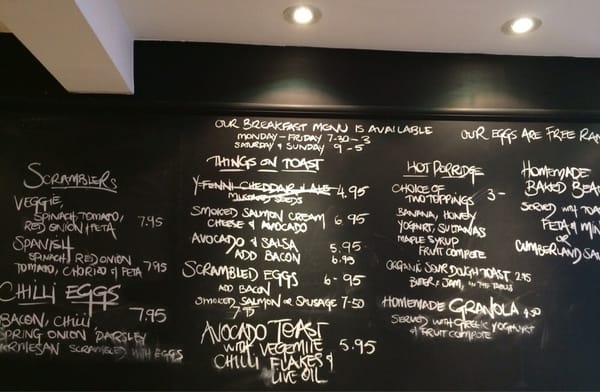 OUR BREAKFAST MENU IS AVAILABLE
MONDAY - FRIDAY 7-30 - 3
SATURDAY & SUNDAY 9 - 5
OUR EGGS ARE FREE RAN
SCRAMBLERS
VEGGIE,
SPINACH, TOMATO,
RED ONION & FETA 7.95
SPANISH
SPINACH RED ONION
TOMATO, CHORIZO & FETA 7.95
CHILLI EGGS
7.95
BACON, CHILLI,
SPRING ONION PARSLEY
PARMESAN SCRAMBLED WITH EGGS
THINGS ON TOAST
Y-FENNI CHEDDAR & ALE 4.95
MUSTARD SEEDS
SMOKED SALMON CREAM 6.95
CHEESE & AVOCADO
AVOCADO & SALSA 5.95
ADD BACON 6.95
SCRAMBLED EGGS 6.95
ADD BACON
SMOKED SALMON OR SAUSAGE 7-50
7.95
AVOCADO TOAST
WITH VEGEMITE 5.95
CHILLI FLAKES &
LIVE OIL
HOT PORRIDGE
CHOICE OF
TWO TOPPINGS 3-
BANANA, HONEY
YOGHURT, SULTANAS
MAPLE SYRUP
FRUIT COMPOTE
ORGANIC SOUR DOUGH TOAST 2.95
BUTTER, JAM,
HOMEMADE GRANOLA 4.50
SERVED WITH GREEK YOGHURT
& FRUIT COMPOTE
HOMEMADE
BAKED BEA
SERVED WITH TOA
FETA & MIN
OR
CUMBERLAND SAU